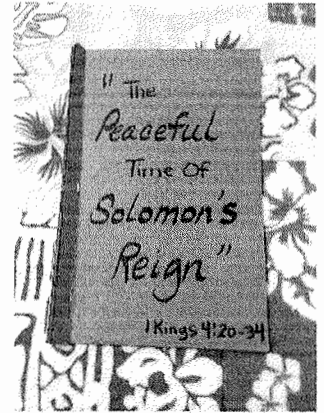 "The
Peaceful
Time Of
Solomon's
Reign"
1 Kings 4:20-34